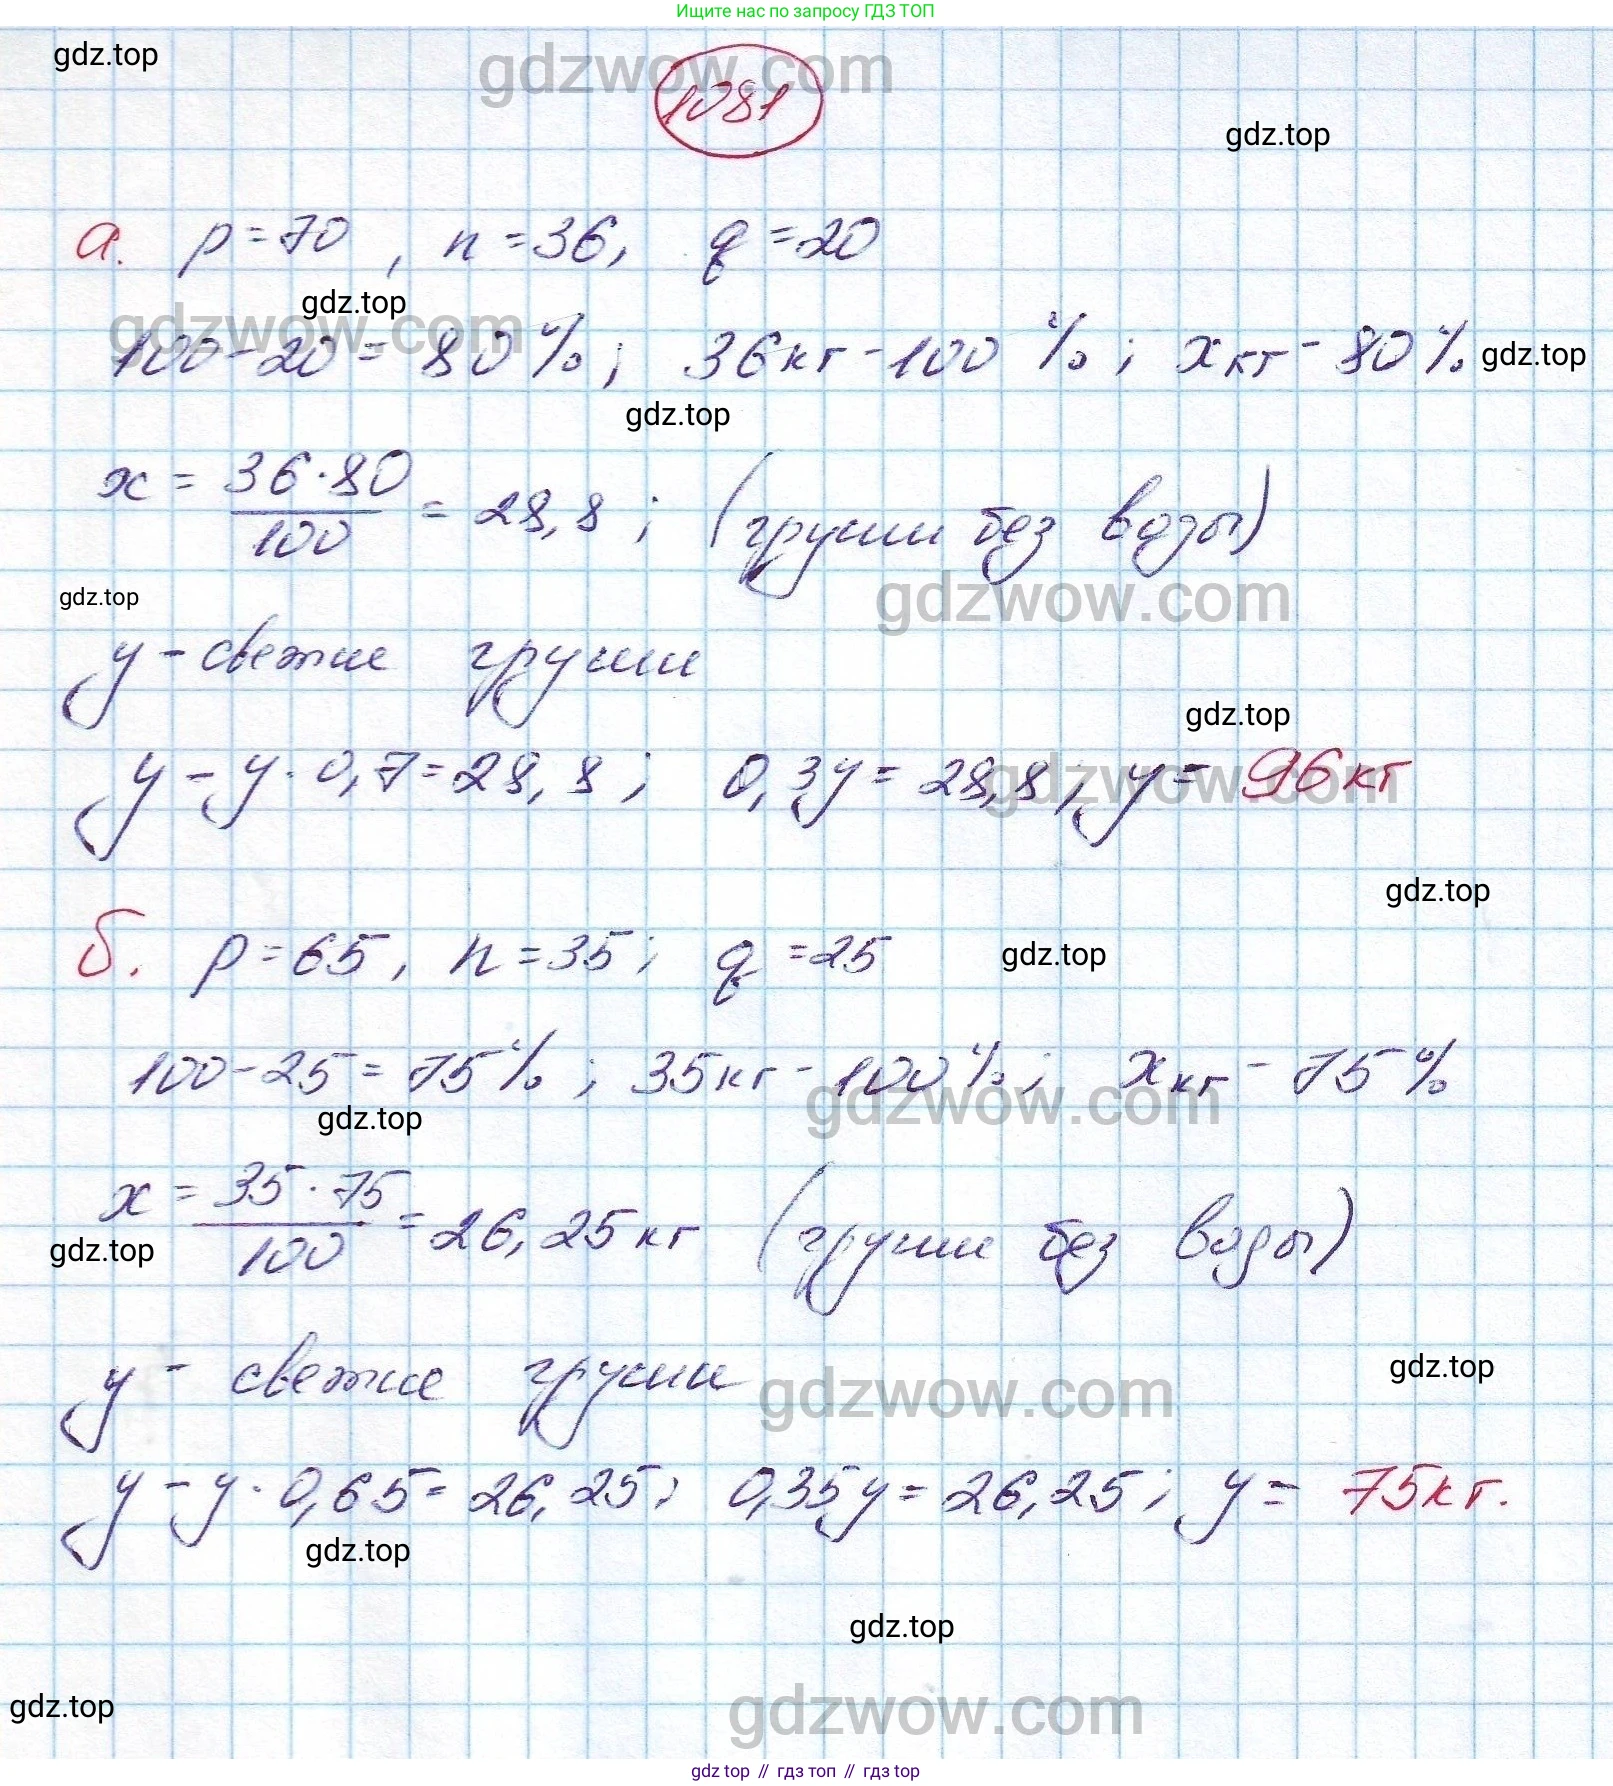 Ищите нас по запросу ГДЗ ТОП
gdz.top
gdzwow.com
1081
gdz.top
а. p=70, n=36, q=20
gdz.top
gdzwow.com
100-20=80%; 36кг-100%; xкг-80%
gdz.top
gdz.top
x = 36·80/100 = 28,8; (груши без воды)
gdz.top
gdzwow.com
y-свежие груши
gdz.top
y-y·0,7=28,8; 0,3y=28,8; y=96кг
gdzwow.com
gdz.top
б. p=65, n=35; q=25
gdz.top
100-25=75%; 35кг-100%; xкг-75%
gdz.top
gdzwow.com
x = 35·75/100 = 26,25кг (груши без воды)
gdz.top
y- свежие груши
gdzwow.com
gdz.top
y-y·0,65=26,25; 0,35y=26,25; y=75кг.
gdz.top
gdz.top
gdz.top
gdzwow.com
gdz top // гдз топ // гдз top